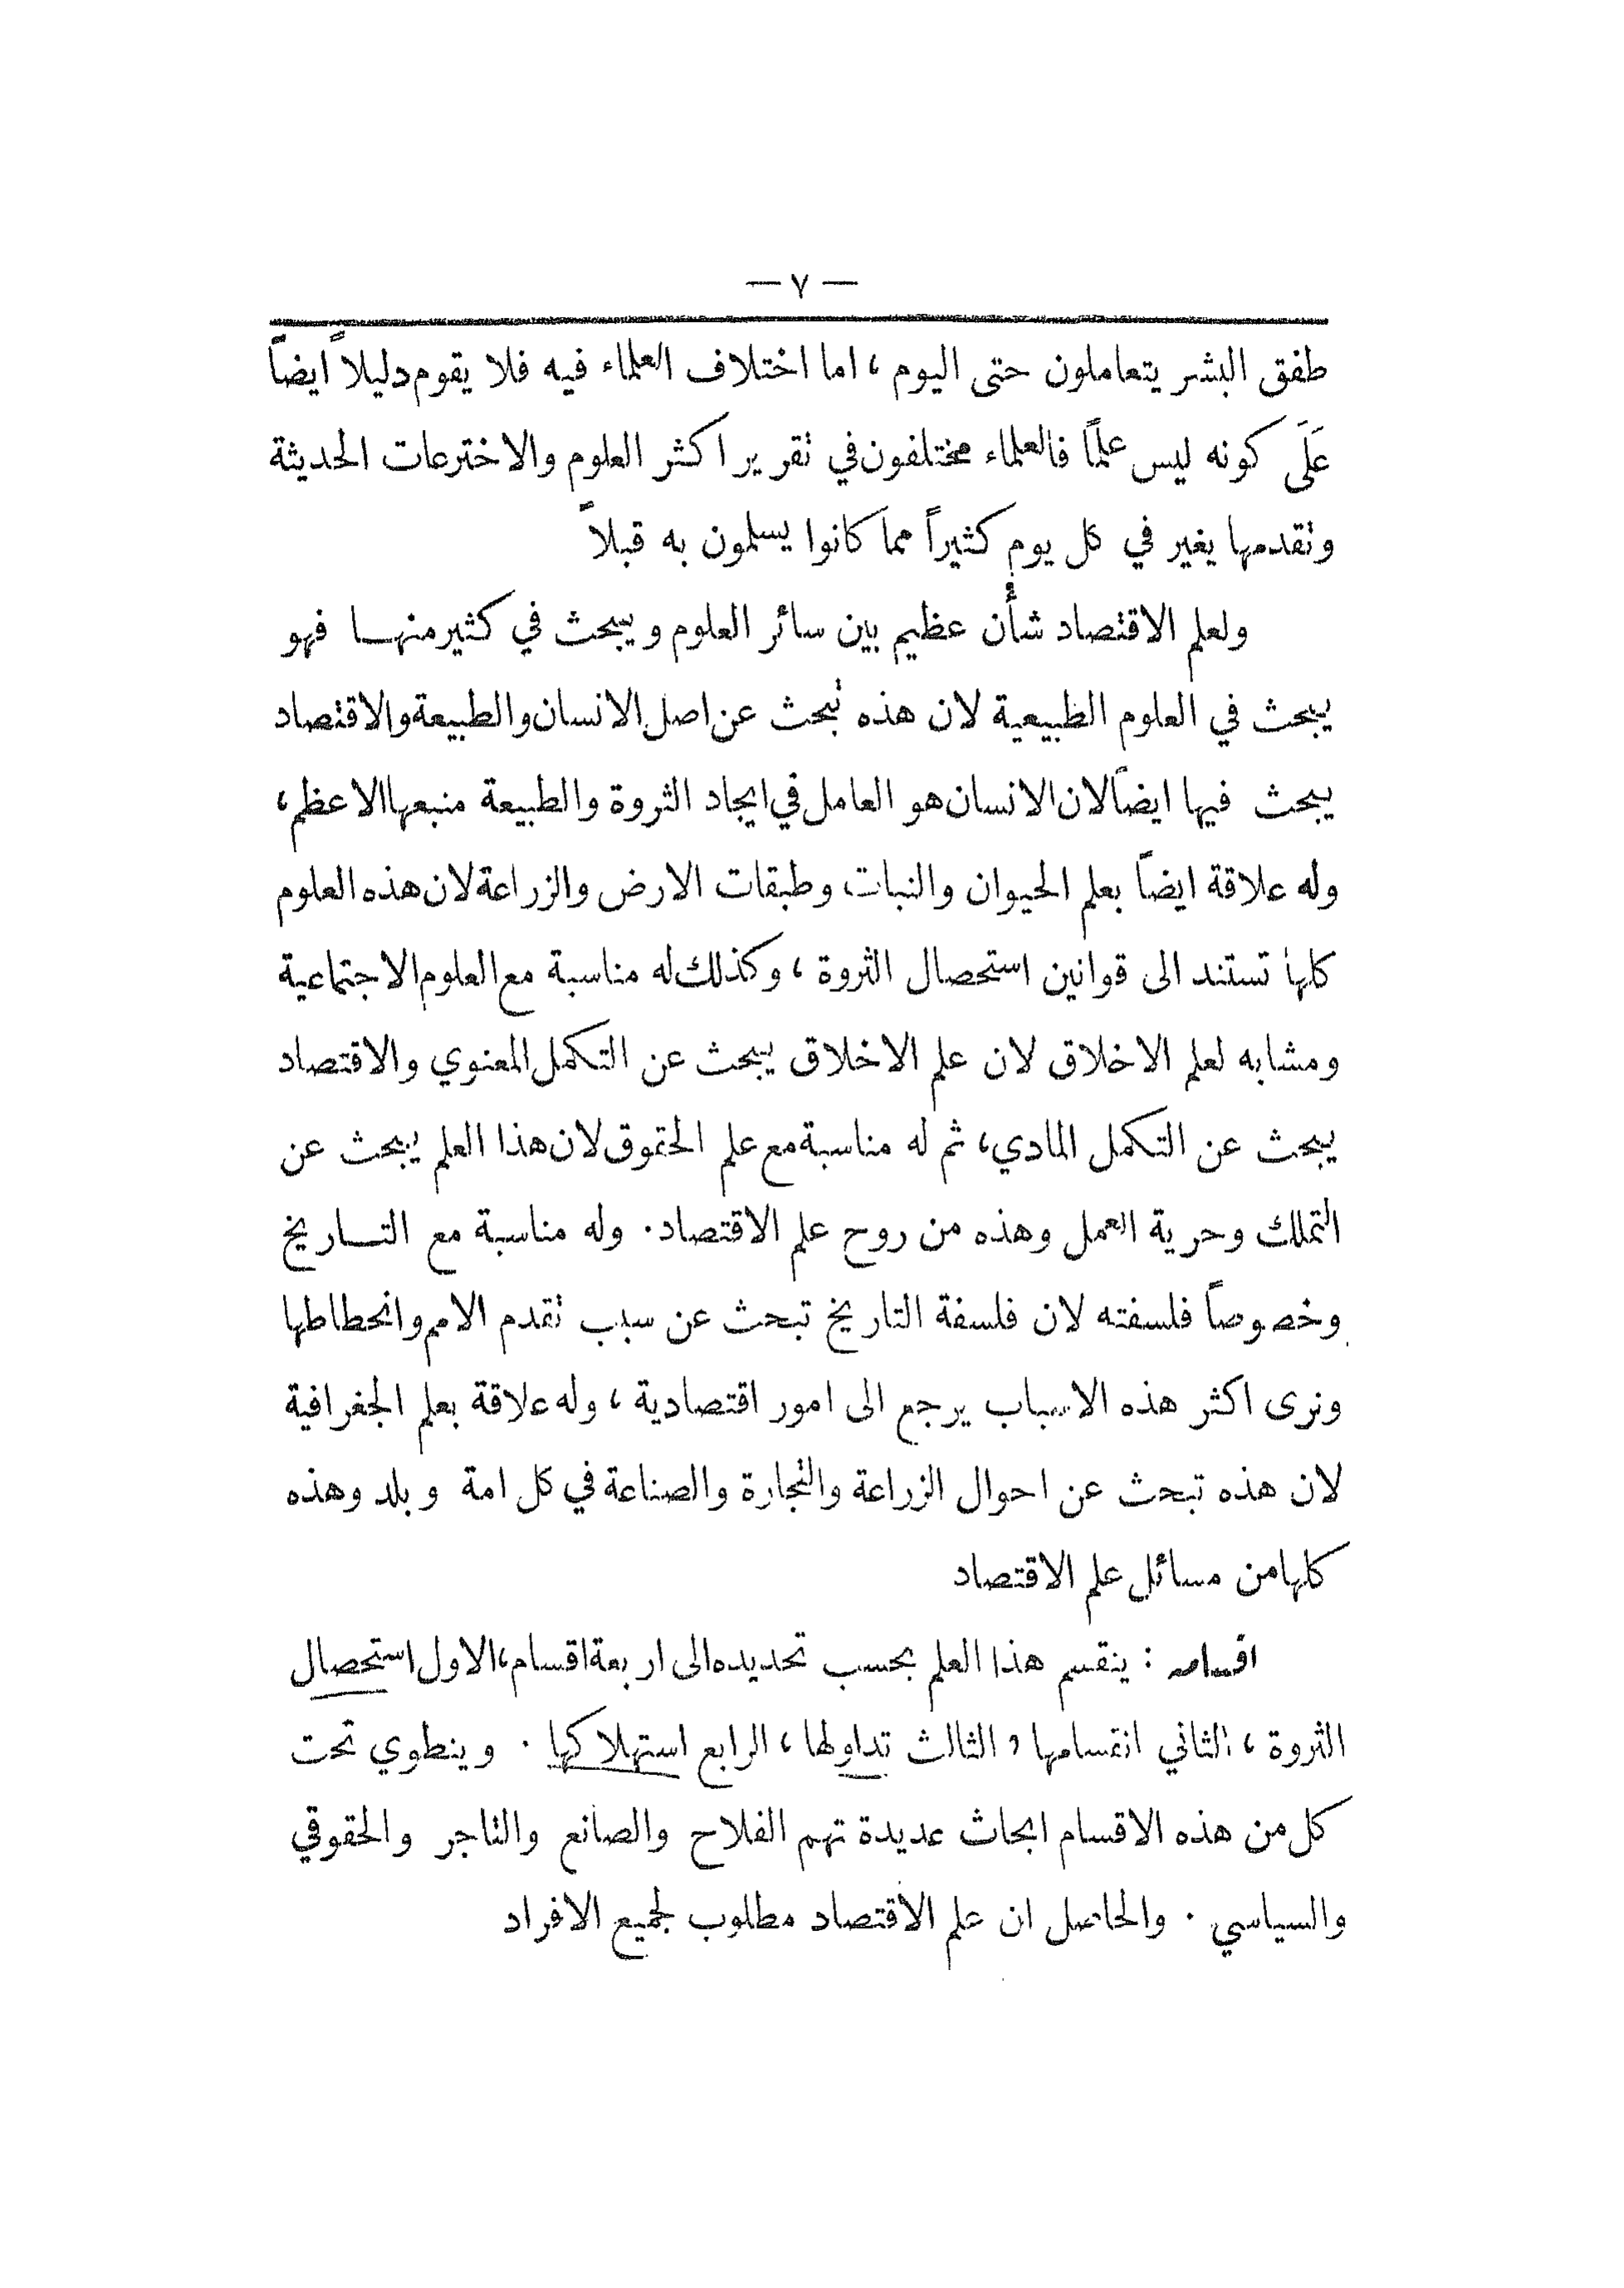 — ٧ —
طفق البشر يتعاملون حتى اليوم ، اما اختلاف العلماء فيه فلا يقوم دليلاً ايضاً
عَلَى كونه ليس علماً فالعلماء مختلفون في تقرير اكثر العلوم والاختراعات الحديثة
وتقدمها يغير في كل يوم كثيراً مما كانوا يسلمون به قبلاً
ولعلم الاقتصاد شأن عظيم بين سائر العلوم ويبحث في كثير منها فهو
يبحث في العلوم الطبيعية لان هذه تبحث عن اصل الانسان والطبيعة والاقتصاد
يبحث فيها ايضاً لان الانسان هو العامل في ايجاد الثروة والطبيعة منبعها الاعظم ،
وله علاقة ايضاً بعلم الحيوان والنبات وطبقات الارض والزراعة لان هذه العلوم
كلها تستند الى قوانين استحصال الثروة ، وكذلك له مناسبة مع العلوم الاجتماعية
ومشابه لعلم الاخلاق لان علم الاخلاق يبحث عن التكمل المعنوي والاقتصاد
يبحث عن التكمل المادي ، ثم له مناسبة مع علم الحقوق لان هذا العلم يبحث عن
التملك وحرية العمل وهذه من روح علم الاقتصاد . وله مناسبة مع التاريخ
وخصوصاً فلسفته لان فلسفة التاريخ تبحث عن سبب تقدم الامم وانحطاطها
ونرى اكثر هذه الاسباب يرجع الى امور اقتصادية ، وله علاقة بعلم الجغرافية
لان هذه تبحث عن احوال الزراعة والتجارة والصناعة في كل امة وبلد وهذه
كلها من مسائل علم الاقتصاد
اقسامه : ينقسم هذا العلم بحسب تحديده الى اربعة اقسام ، الاول استحصال
الثروة ، الثاني انقسامها و الثالث تداولها ، الرابع استهلاكها . وينطوي تحت
كل من هذه الاقسام ابحاث عديدة تهم الفلاح والصانع والتاجر والحقوقي
والسياسي . والحاصل ان علم الاقتصاد مطلوب لجميع الافراد